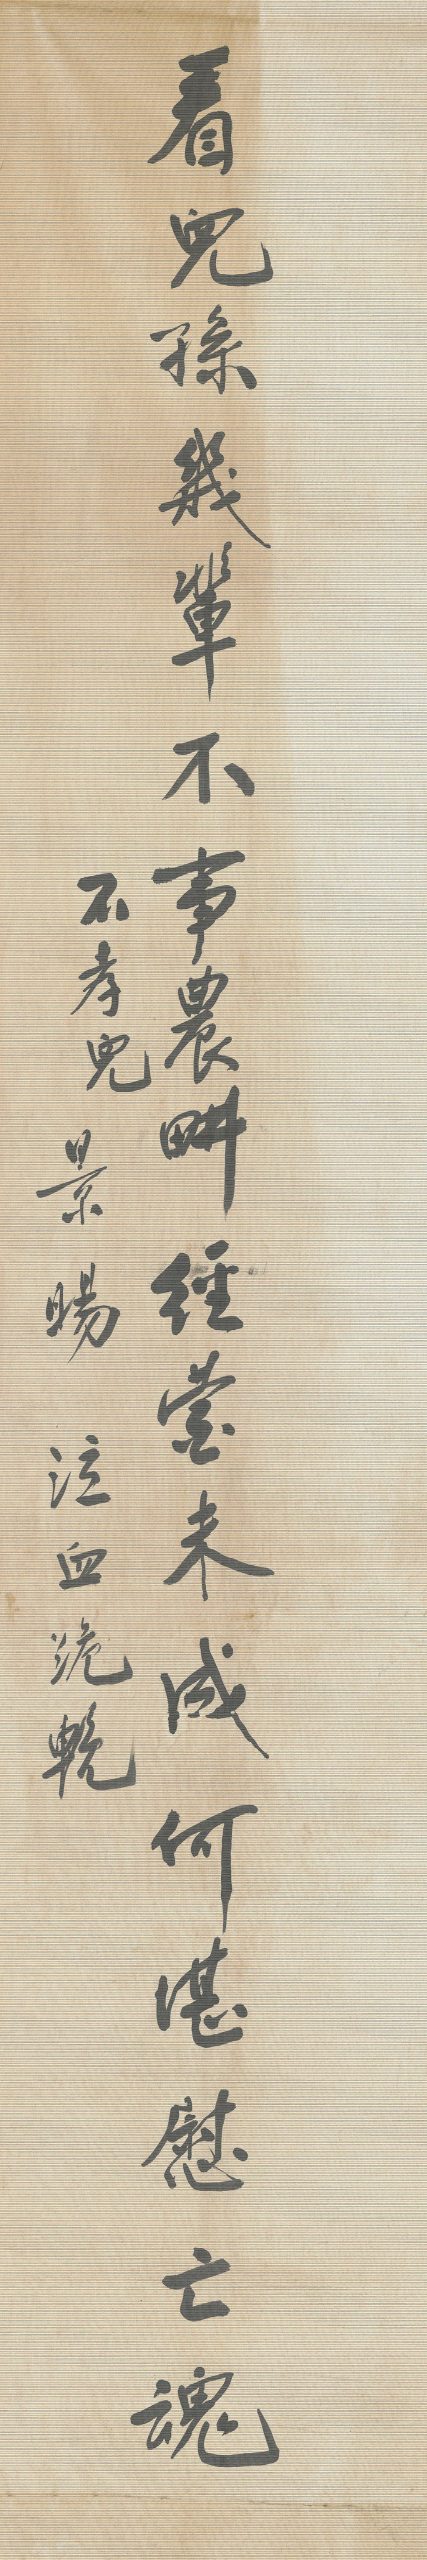 看兒孫幾輩不事農畊經營未成何堪慰亡魂
不孝兒景暘泣血跪輓